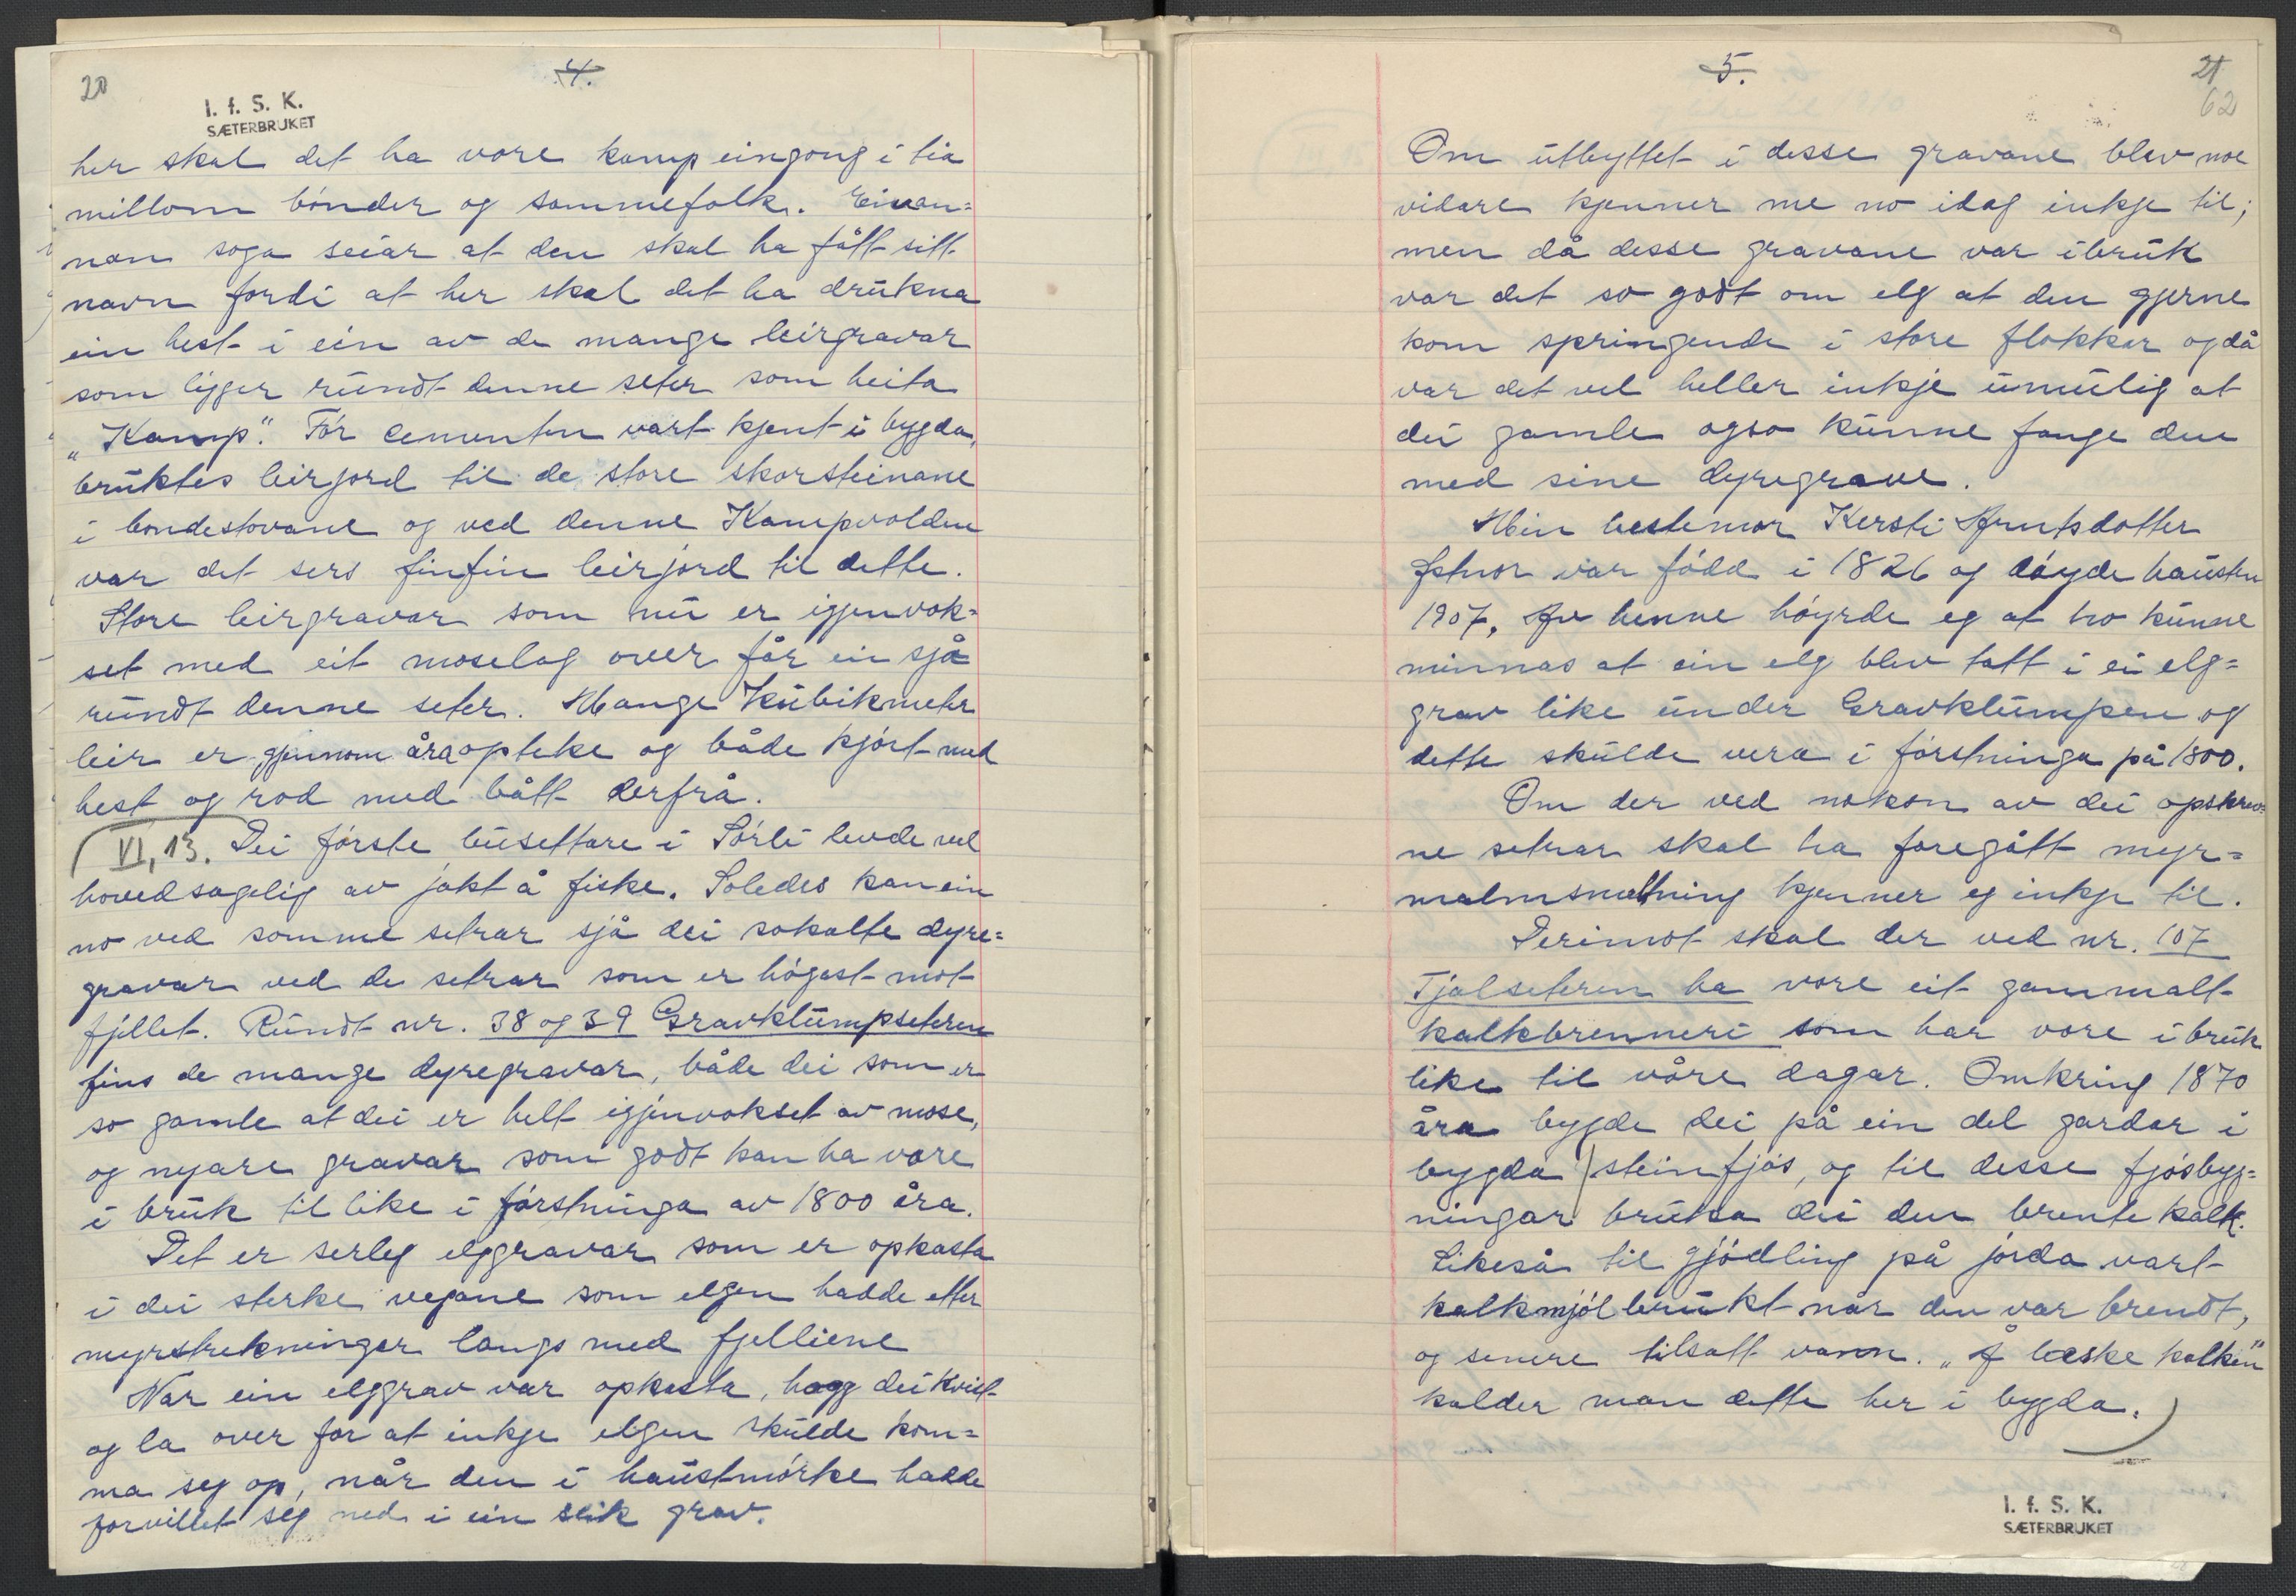 20
4.
I. f. S. K.
SÆTERBRUKET
her skal det ha vore kamp eingong i tia
millom bönder og sammefolk. Einan=
nan soga seiar at den skal ha fått sitt
navn fordi at her skal det ha drukna
ein hest i ein av de mange leirgravar
som ligger rundt denne seter som heita
"Kamp". För cementen vart kjent i bygda,
bruktes leirjord til de store skorsteinane
i bondestovane og ved denne Kampvolden
var det sers finfin leirjord til dette.
Store leirgravar som nu er igjenvok=
set med eit moselag over får ein sjå
rundt denne seter. Mange Kubikmeter
leir er gjennom åra opteke og både kjört med
hest og rod med bått derfrå.
VI, 13. Dei förste busettare i Sörli levde vel
hovedsagelig av jakt å fiske. Soledes kan ein
no ved somme setrar sjå dei sokalte dyre=
gravar ved de setrar som er högast mot
fjellet. Rundt nr. 38 og 39 Gravklumpseteren
fins de mange dyregravar, både dei som er
so gamle at dei er helt igjenvokset av mose,
og nyare gravar som godt kan ha vore
i bruk til like i förstninga av 1800 åra.
Det er serleg elggravar som er opkasta
i dei sterke vegane som elgen hadde etter
myrstrekninger langs med fjelliene
Når ein elggrav var opkasta, hogg dei kvist
og la over for at inkje elgen skulde kom=
ma seg op, når den i haustmörke hadde
forvillet seg ned i ein slik grav.
5.
21
62
Om utbyttet i desse gravane blev noe
vidare kjenner me no idag inkje til;
men då desse gravane var ibruk
var det so godt om elg at den gjerne
kom springende i store flokkar og då
var det vel heller inkje umulig at
dei gamle ogso kunne fange den
med sine dyregrave.
Min bestemor Kersti Arntsdotter
var född i 1826 og döyde hausten
1907. Av henne höyrde eg at ho kunne
minnas at ein elg blev tatt i ei elg=
grav like under Gravklumpen og
dette skulde vera i förstninga på 1800.
Om der ved nokon av dei opskrev=
ne setrar skal ha foregått myr=
malmsmeltning kjenner eg inkje til.
Derimot skal der ved nr. 107
Tjalseteren ha vore eit gammalt
kalkbrenneri som har vore i bruk
like til våre dagar. Omkring 1870
åra bygde dei på ein del gardar i
bygda steinfjös, og til desse fjösbyg=
ningar bruka dei den brente kalk.
Likeså til gjödling på jorda vart
kalkmjöl brukt når den var brendt,
og senere tilsatt vann. "Å læske kalken"
kalder man dette her i bygda.
I. f. S. K.
SÆTERBRUKET